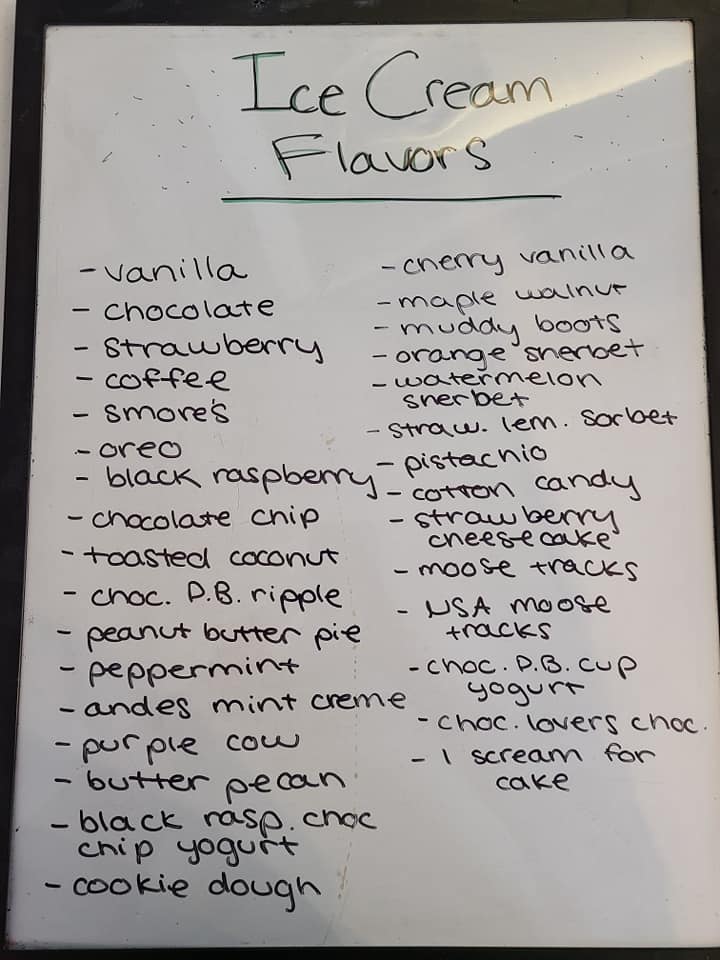 Ice Cream
Flavors
- vanilla
- chocolate
- strawberry
- coffee
- smore's
- oreo
- black raspberry
- chocolate chip
- toasted coconut
- choc. P.B. ripple
- peanut butter pie
- peppermint
- andes mint creme
- purple cow
- butter pecan
- black rasp. choc
chip yogurt
- cookie dough
- cherry vanilla
- maple walnut
- muddy boots
- orange sherbet
- watermelon
sherbet
- straw. lem. sorbet
- pistachio
- cotton candy
- strawberry
cheesecake
- moose tracks
- USA moose
tracks
- choc. P.B. cup
yogurt
- choc. lovers choc.
- I scream for
cake